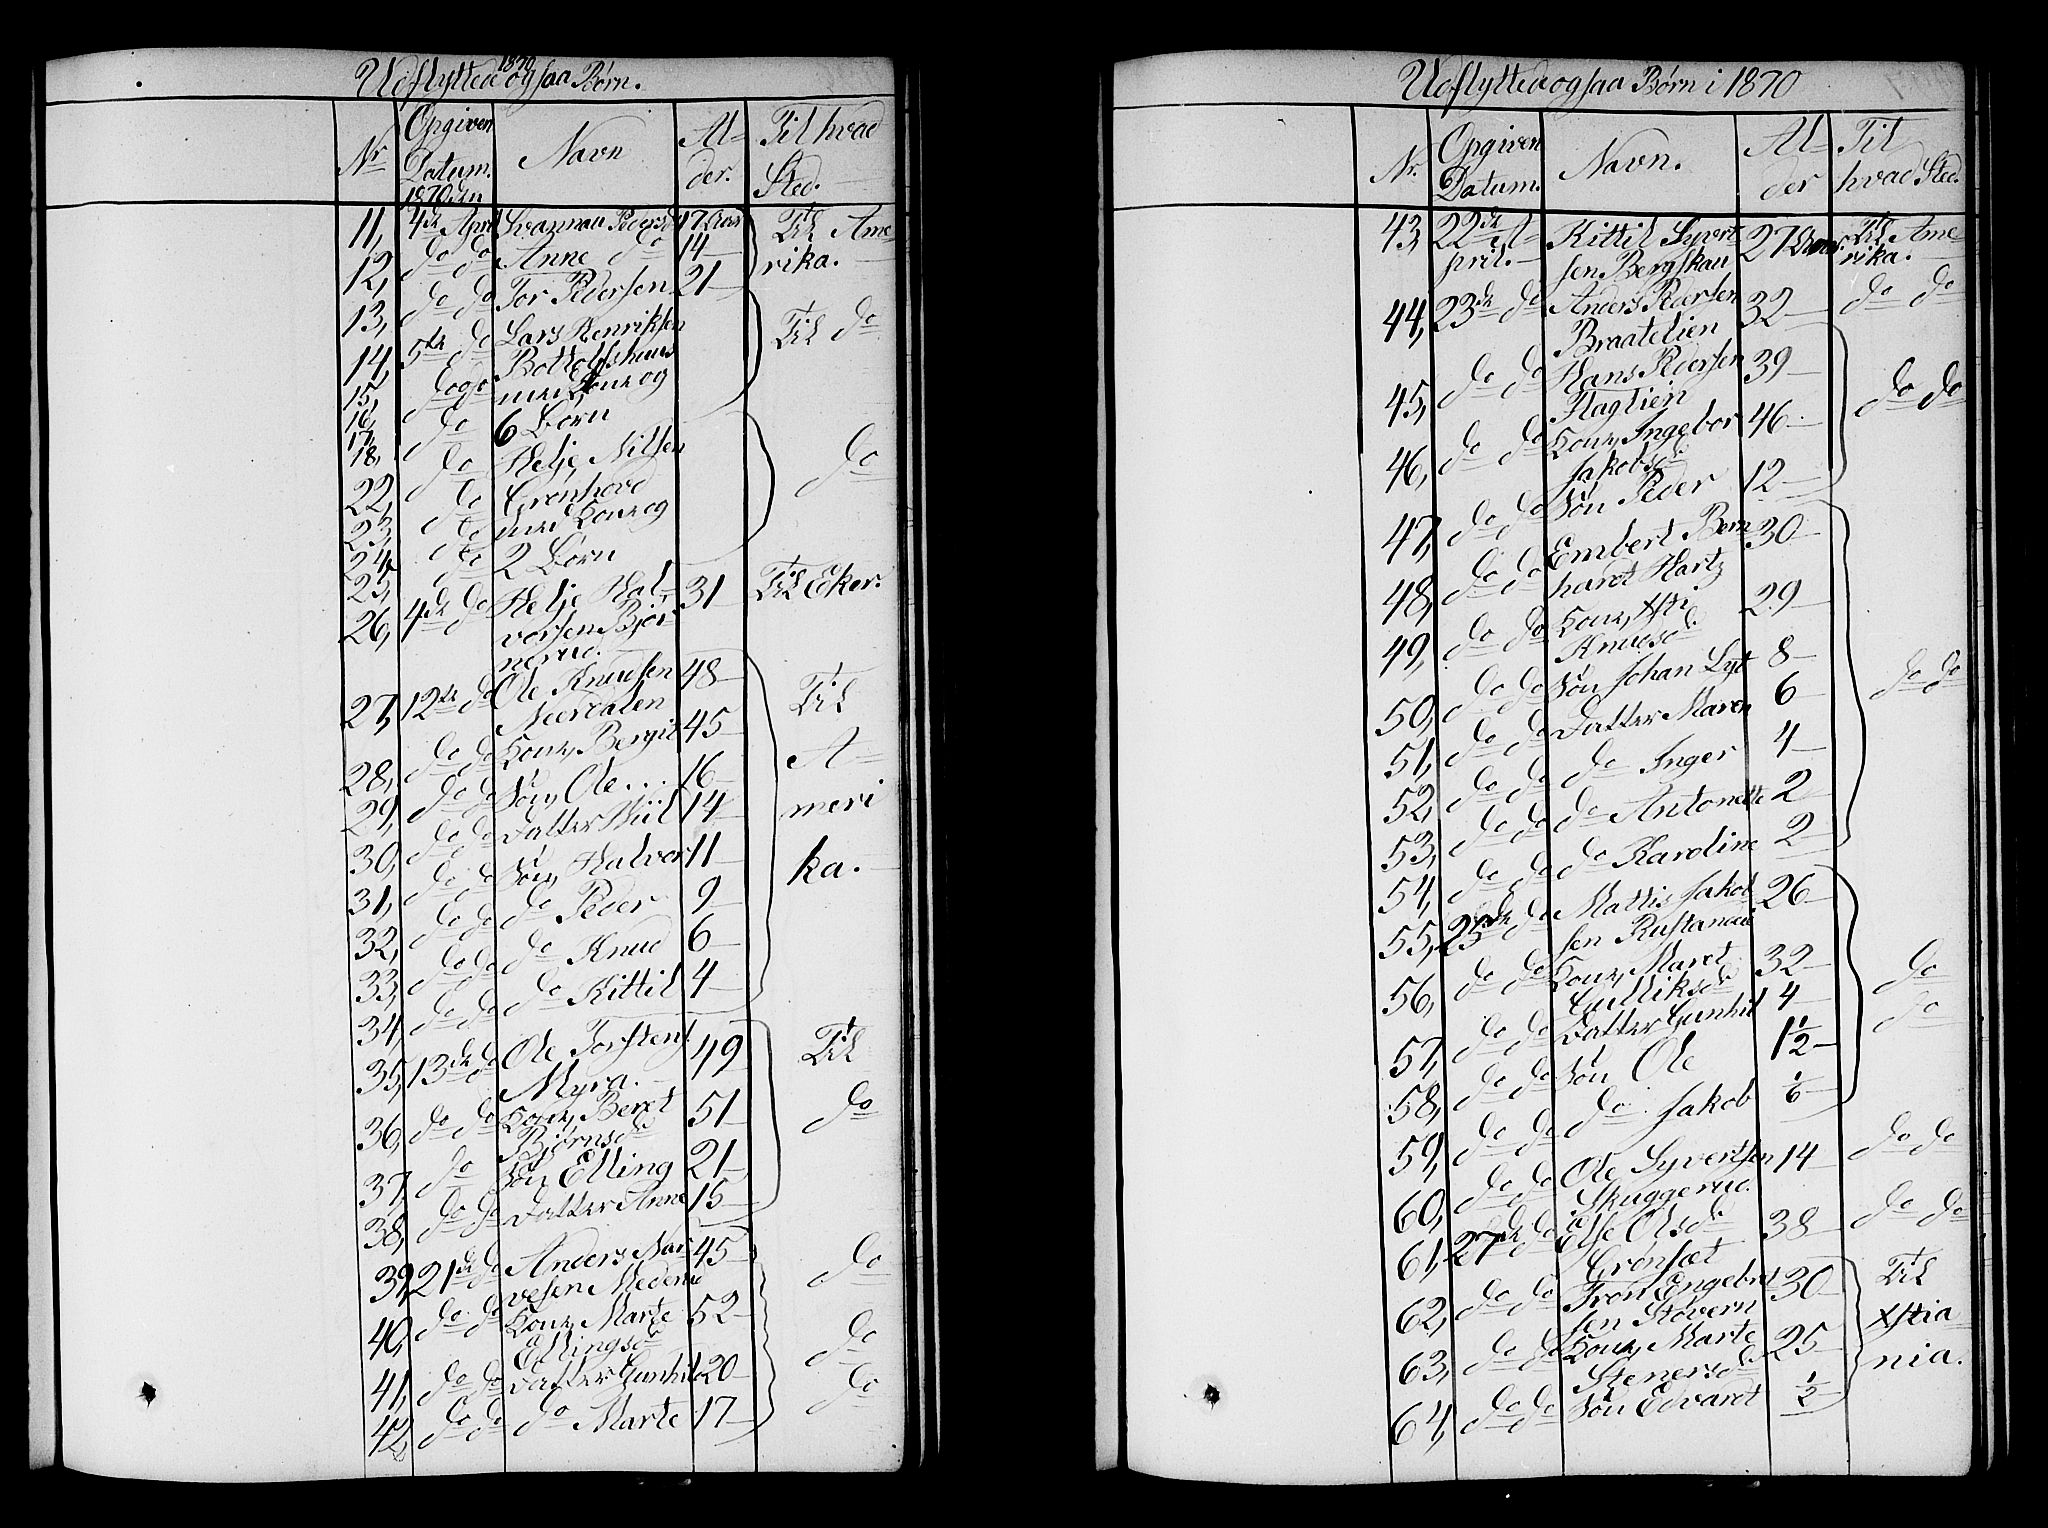 1870
Udflyttede ogsaa Børn.
Nr Opgiven Datum. 1870 den Navn Alder. Til hvad Sted.
11, 4de April Svannau Pedersd 17 Aar Til Ame-
12, do do Anne do 14 — rika.
13, do do Tor Pedersen 21 —
14, 5te do Lars Henriksen Til do
15, do do Bottolfshuus
16, do med Kone og
17,
18, 6 Børn
22, do Helje Nilsen do
23, do Grønhovd
24, do med Kone og
25, do 2 Børn
26, 4de do Helje Hal- 31 Til Eker.
vorsen Bjør
nerud.
27, 12te do Ole Knudsen 48 — Til
Neerdalen
28, do do Kone, Bergit 45 — A-
29, do do Søn, Ole... 16 —
30, do do Datter 14 — meri
31, do do Søn, Halvor 11 — ka.
32, do do do Peder 9 —
33, do do do Knud 6 —
34, do do do Kittil 4 —
35, 13de do Ole Torstens 49 Til
Myra.
36, do do Kone, Beret 51 — do
Bjørnsd
37, do Søn Elling 21 —
38, do do Datter Anne 15 —
39, 21de do Anders Nar 45 — do
vesen Mederud
40, do do Kone, Marte 52 —
Ellingsd do
41, do do Datter Gunhil 20 —
42, do do do Marte 17 — do
Udflyttede ogsaa Børn i 1870
Nr. Opgiven Datum. Navn. Alder Til hvad Sted.
43, 22de A- Kittil Syvert 27 Aar. Til Ame
pril. — sen Bergskau rika.
44, 23de do Anders Pedersen 32 — do do
Braatelien
45, do do Hans Pedersen 39 —
Haglien do do
46, do do Kone, Ingebor 46 —
Jakobsd
47, do do Søn Peder 12 —
48, do do Embert Bern 30 —
hardt Hartz
49, do do Kone, 29 —
Knudsd
50, do do Søn Johan Lyt 8 — do do
51, do do Datter Maren 6 —
52, do do do Inger 4 —
53, do do do Antonette 2 —
54, do do do Karoline 2 —
55, 25de do Mattis Jakob 26 —
sen Rustandeie
56, do do Kone, Maret 32 — do
Gulliksd
57, do do Datter Gunhil 4 — do
58, do do Søn Ole 1½ —
59, do do do Jakob 1/6 —
60, do do Ole Syvertsen 14 — do do
Skuggerud.
61, 27de do Else Olsd 38 — do do
Grønsæt
62, do do Tron Engebret 30 — Til
sen Støvern
63, do do Kone, Marte 25 — Xstia
Stenersd nia.
64, do do Søn Edvardt ½ —